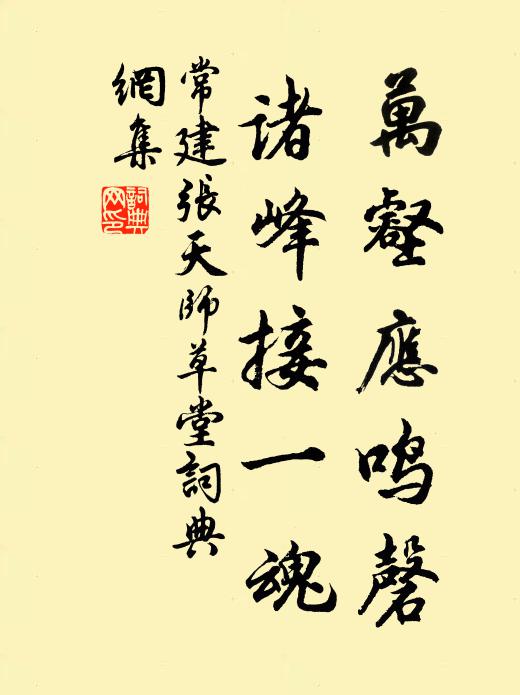 萬壑應鳴磬
諸峰接一魂
常建張天師草堂詞典
網集
詞典
网印